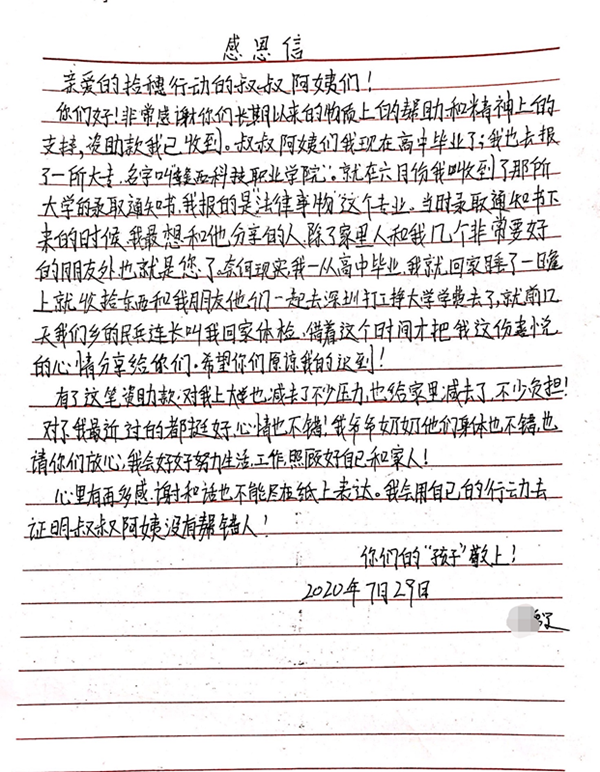 感恩信
亲爱的拾穗行动的叔叔阿姨们！
你们好！非常感谢你们长期以来的物质上的帮助和精神上的
支持，资助款我已收到。叔叔阿姨们我现在高中毕业了；我也去报
了一所大专，名字叫赣西科技职业学院；。就在六月份我叫收到了那所
大学的录取通知书，我报的是"法律事物"这个专业。当时录取通知书下
来的时候，我最想和他分享的人，除了家里人和我几个非常要好
的朋友外也就是您了，奈何现实，我一从高中毕业，我就回家睡了一晚
上就收拾东西和我朋友他们一起去深圳打工挣大学学费去了，就前几
天我们乡的民兵连长叫我回家体检，借着这个时间才把我这份喜悦
的心情分享给你们，希望你们原谅我的迟到！
有了这笔资助款，对我上大学也减去了不少压力，也给家里减去了不少负担！
对了我最近过的都挺好，心情也不错！我爷爷奶奶他们身体也不错，也
请你们放心；我会好好努力生活，工作，照顾好自己和家人！
心里有再多感谢和话也不能尽在纸上表达。我会用自己的行动去
证明叔叔阿姨没有帮错人！
你们的"孩子"敬上！
2020年7月29日